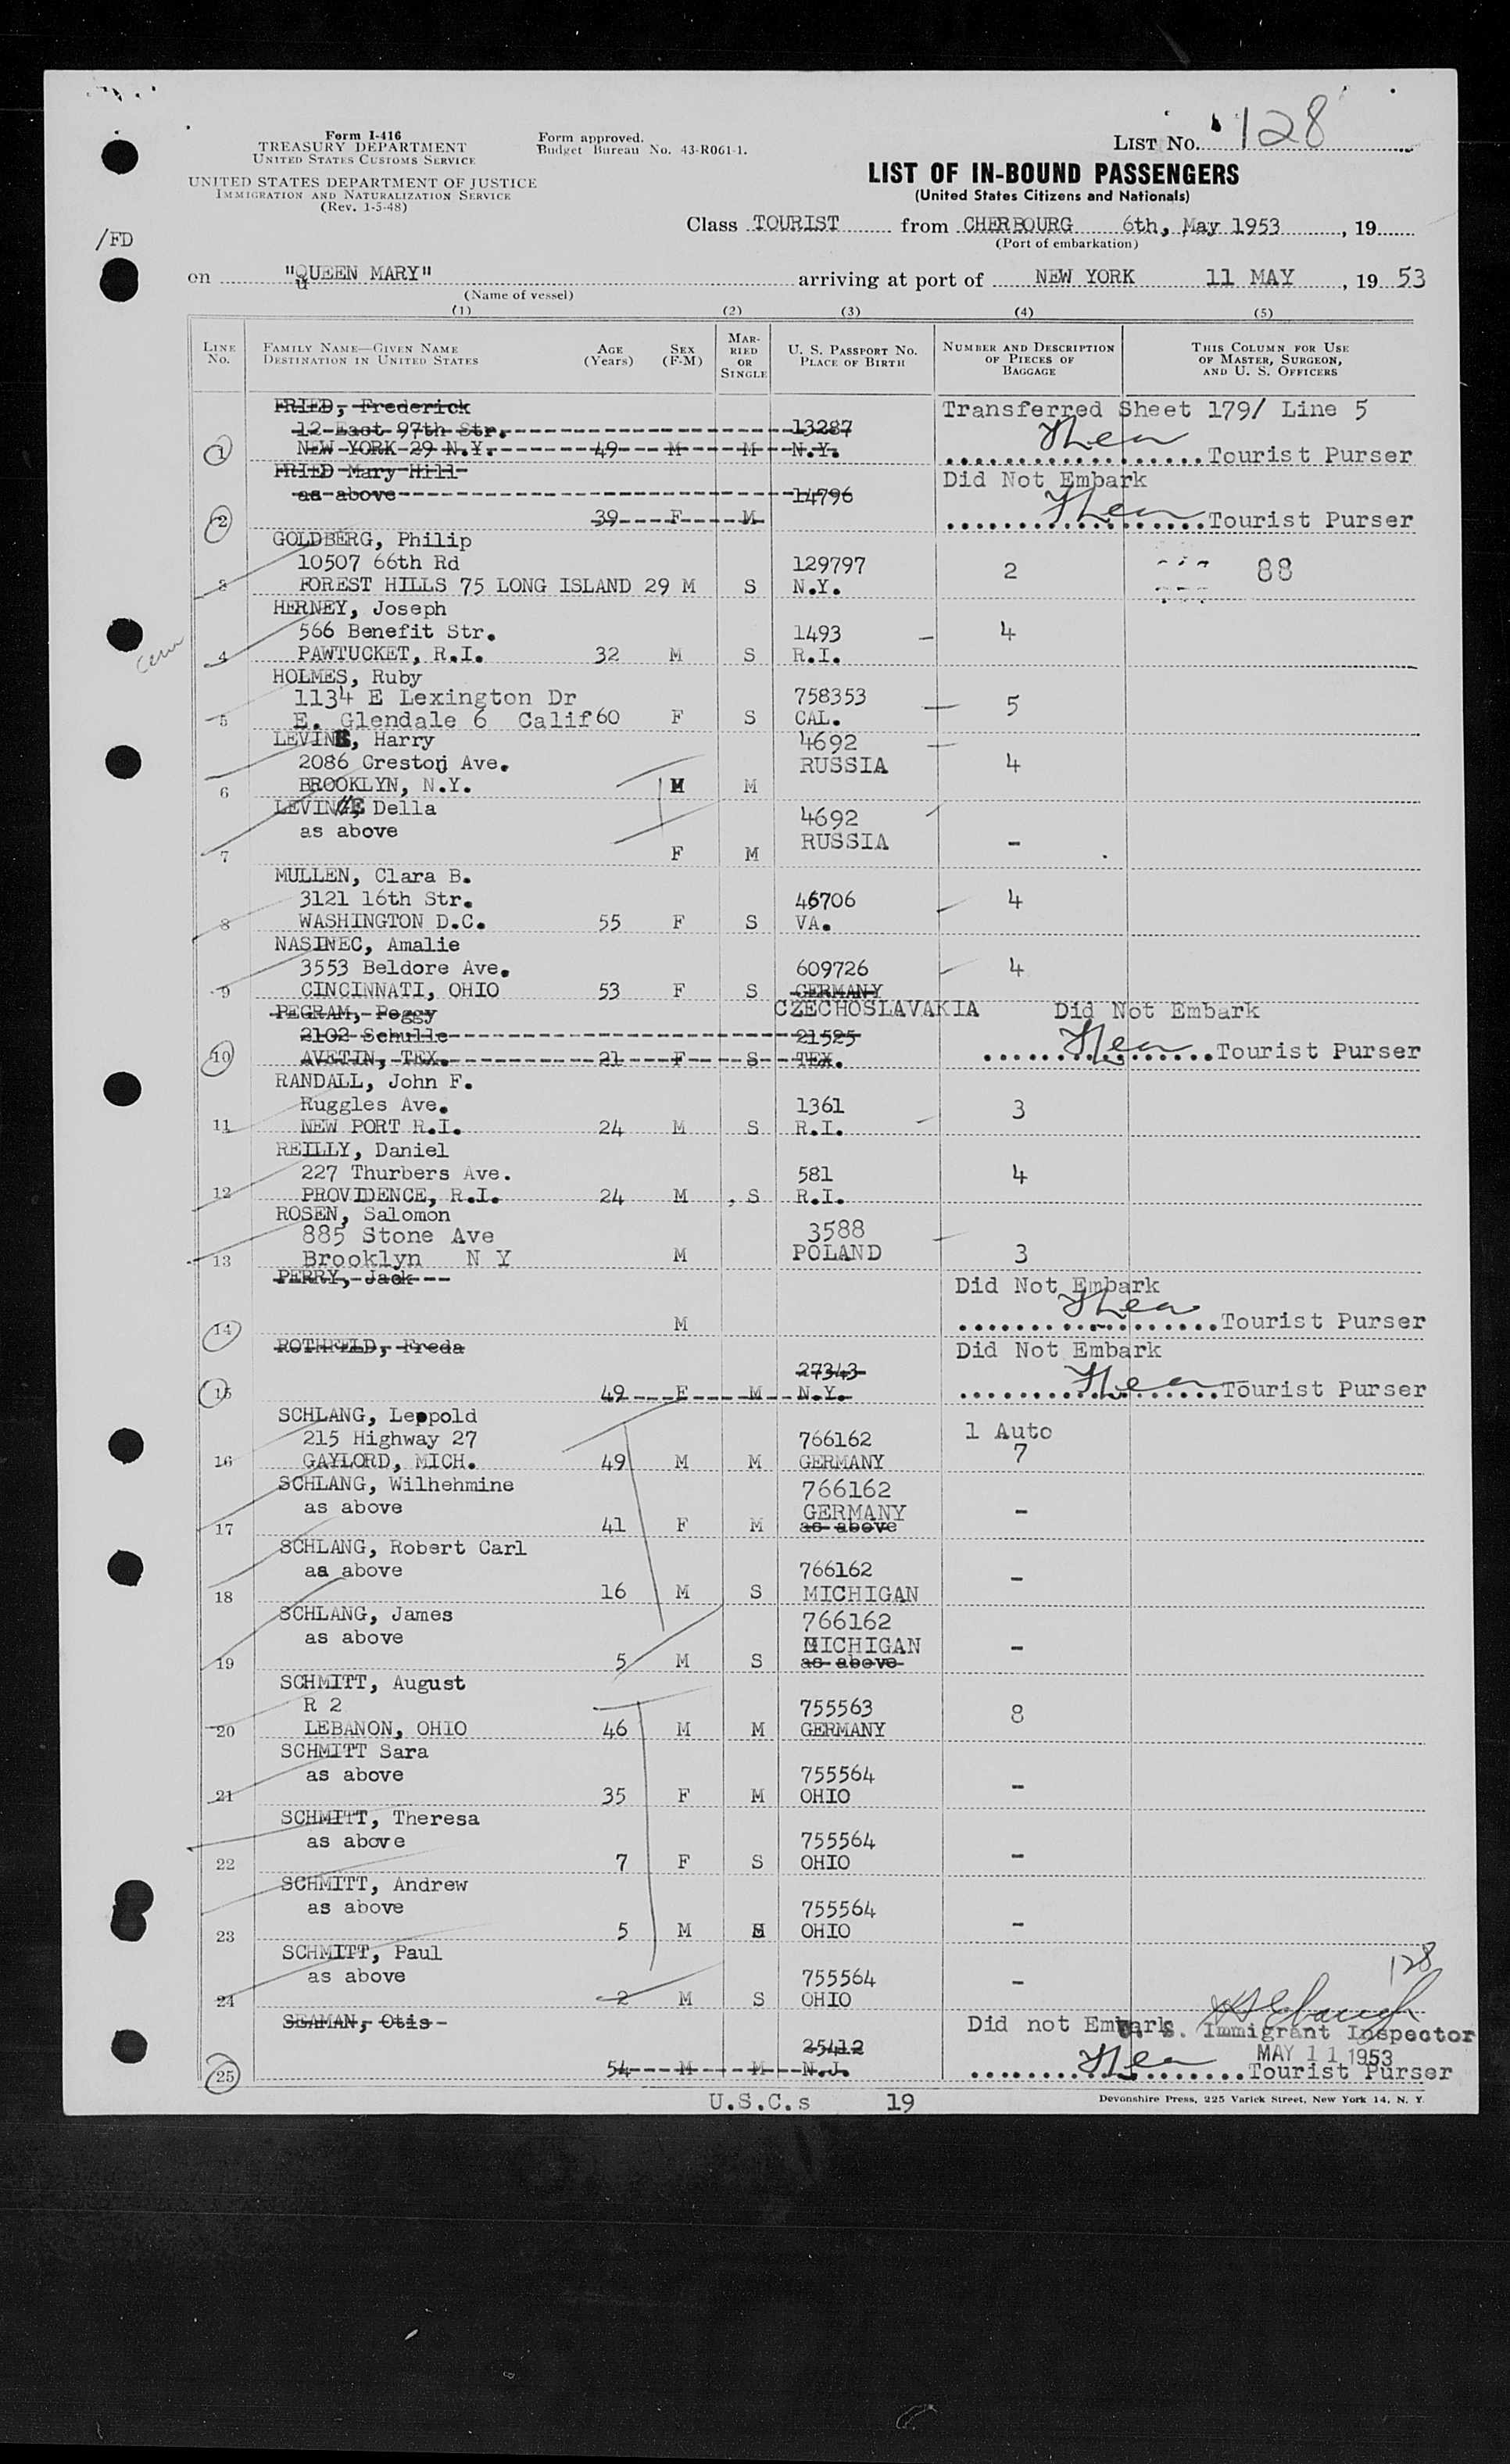 Form I-416
TREASURY DEPARTMENT
UNITED STATES CUSTOMS SERVICE
UNITED STATES DEPARTMENT OF JUSTICE
IMMIGRATION AND NATURALIZATION SERVICE
(Rev. 1-5-48)
Form approved.
Budget Bureau No. 43-R061-1.
LIST No. 128
LIST OF IN-BOUND PASSENGERS
(United States Citizens and Nationals)
/FD
Class TOURIST from CHERBOURG 6th, May 1953, 19
(Port of embarkation)
on "QUEEN MARY" arriving at port of NEW YORK 11 MAY, 19 53
(Name of vessel)
(1) (2) (3) (4) (5)
LINE No. FAMILY NAME—GIVEN NAME DESTINATION IN UNITED STATES AGE (Years) SEX (F-M) MARRIED OR SINGLE U. S. PASSPORT No. PLACE OF BIRTH NUMBER AND DESCRIPTION OF PIECES OF BAGGAGE THIS COLUMN FOR USE OF MASTER, SURGEON, AND U. S. OFFICERS
FRIED, Frederick Transferred Sheet 179/ Line 5
12 East 97th Str. 13287
1 NEW YORK 29 N.Y. 49 M M N.Y. Tourist Purser
FRIED Mary Hill Did Not Embark
as above 14796
2 39 F M Tourist Purser
GOLDBERG, Philip
10507 66th Rd 129797 2 88
3 FOREST HILLS 75 LONG ISLAND 29 M S N.Y.
HERNEY, Joseph
566 Benefit Str. 1493 – 4
4 PAWTUCKET, R.I. 32 M S R.I.
HOLMES, Ruby
1134 E Lexington Dr 758353 5
5 E. Glendale 6 Calif 60 F S CAL.
LEVINE, Harry 4692
2086 Creston Ave. RUSSIA 4
6 BROOKLYN, N.Y. M M
LEVINE, Della 4692
as above RUSSIA -
7 F M
MULLEN, Clara B.
3121 16th Str. 46706 4
8 WASHINGTON D.C. 55 F S VA.
NASINEC, Amalie
3553 Beldore Ave. 609726 4
9 CINCINNATI, OHIO 53 F S GERMANY
PEGRAM, Peggy CZECHOSLAVAKIA Did Not Embark
2102 Schulle 21525
10 AVETIN, TEX. 21 F S TEX. Tourist Purser
RANDALL, John F.
Ruggles Ave. 1361 3
11 NEW PORT R.I. 24 M S R.I.
REILLY, Daniel
227 Thurbers Ave. 581 4
12 PROVIDENCE, R.I. 24 M , S R.I.
ROSEN, Salomon
885 Stone Ave 3588
13 Brooklyn N Y M POLAND 3
PERRY, Jack Did Not Embark
14 M Tourist Purser
ROTHFELD, Freda Did Not Embark
27343
15 49 F M N.Y. Tourist Purser
SCHLANG, Leopold 1 Auto
215 Highway 27 766162 7
16 GAYLORD, MICH. 49 M M GERMANY
SCHLANG, Wilhehmine 766162
as above GERMANY -
17 41 F M as above
SCHLANG, Robert Carl
as above 766162 -
18 16 M S MICHIGAN
SCHLANG, James 766162
as above MICHIGAN -
19 5 M S as above
SCHMITT, August
R 2 755563 8
20 LEBANON, OHIO 46 M M GERMANY
SCHMITT Sara
as above 755564 -
21 35 F M OHIO
SCHMITT, Theresa
as above 755564 -
22 7 F S OHIO
SCHMITT, Andrew
as above 755564 -
23 5 M S OHIO
SCHMITT, Paul 128
as above 755564 -
24 2 M S OHIO
SEAMAN, Otis Did not Embark U. S. Immigrant Inspector
25412 MAY 11 1953
25 54 M M N.J. Tourist Purser
U.S.C.s 19
Devonshire Press, 225 Varick Street, New York 14, N. Y.